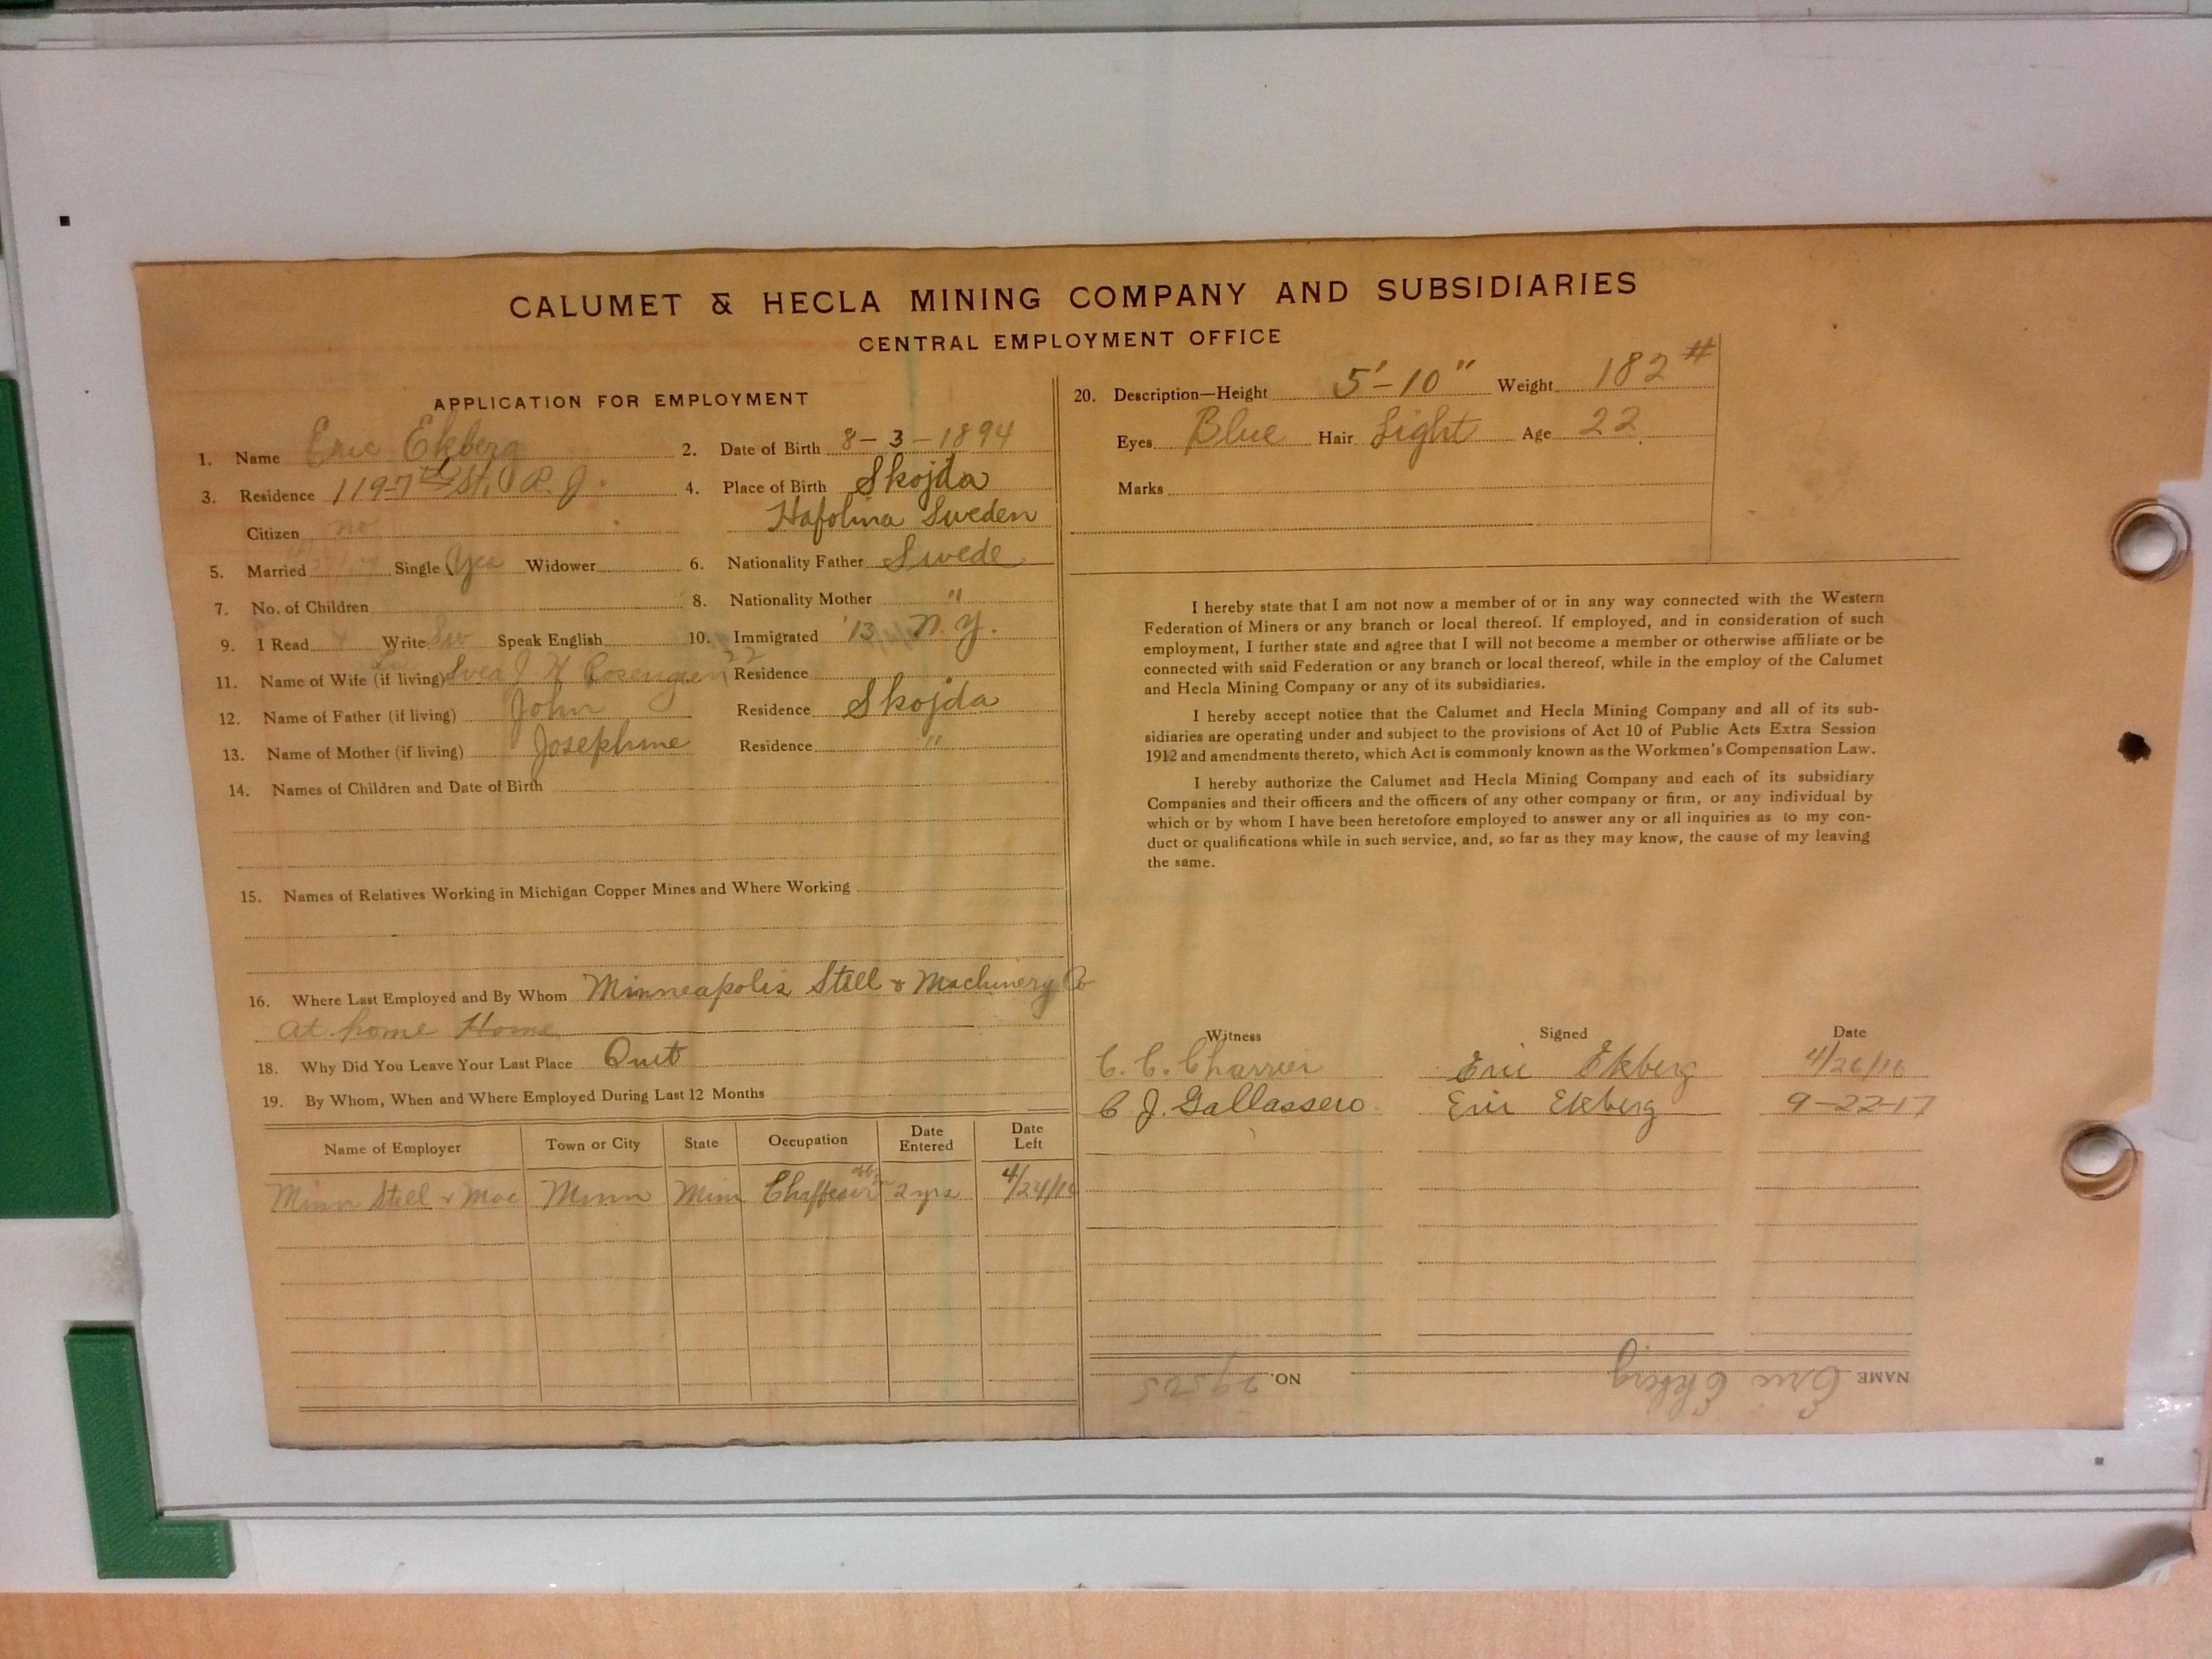 CALUMET & HECLA MINING COMPANY AND SUBSIDIARIES
CENTRAL EMPLOYMENT OFFICE
APPLICATION FOR EMPLOYMENT
1. Name Eric Ekberg 2. Date of Birth 8-3-1894
3. Residence 119-7th St, R. J. 4. Place of Birth Skojda
Citizen no Hafolina Sweden
5. Married Single Yes Widower 6. Nationality Father Swede
7. No. of Children 8. Nationality Mother "
9. I Read Write Sw Speak English 10. Immigrated '13 N.Y.
11. Name of Wife (if living) Svea J. H Rosengren 22 Residence
12. Name of Father (if living) John Residence Skojda
13. Name of Mother (if living) Josephine Residence "
14. Names of Children and Date of Birth
15. Names of Relatives Working in Michigan Copper Mines and Where Working
16. Where Last Employed and By Whom Minneapolis Stell & Machinery Co
at home Home
18. Why Did You Leave Your Last Place Quit
19. By Whom, When and Where Employed During Last 12 Months
Name of Employer Town or City State Occupation Date Entered Date Left
Minn Stell & Mac Minn Minn Chaffeair 2 yrs 4/24/16
20. Description—Height 5'-10" Weight 182#
Eyes Blue Hair Light Age 22
Marks
I hereby state that I am not now a member of or in any way connected with the Western
Federation of Miners or any branch or local thereof. If employed, and in consideration of such
employment, I further state and agree that I will not become a member or otherwise affiliate or be
connected with said Federation or any branch or local thereof, while in the employ of the Calumet
and Hecla Mining Company or any of its subsidiaries.
I hereby accept notice that the Calumet and Hecla Mining Company and all of its sub-
sidiaries are operating under and subject to the provisions of Act 10 of Public Acts Extra Session
1912 and amendments thereto, which Act is commonly known as the Workmen's Compensation Law.
I hereby authorize the Calumet and Hecla Mining Company and each of its subsidiary
Companies and their officers and the officers of any other company or firm, or any individual by
which or by whom I have been heretofore employed to answer any or all inquiries as to my con-
duct or qualifications while in such service, and, so far as they may know, the cause of my leaving
the same.
Witness Signed Date
C. C. Charrier Eric Ekberg 4/26/16
C J. Gallassero Eric Ekberg 9-22-17
NAME Eric Ekberg NO. 29505